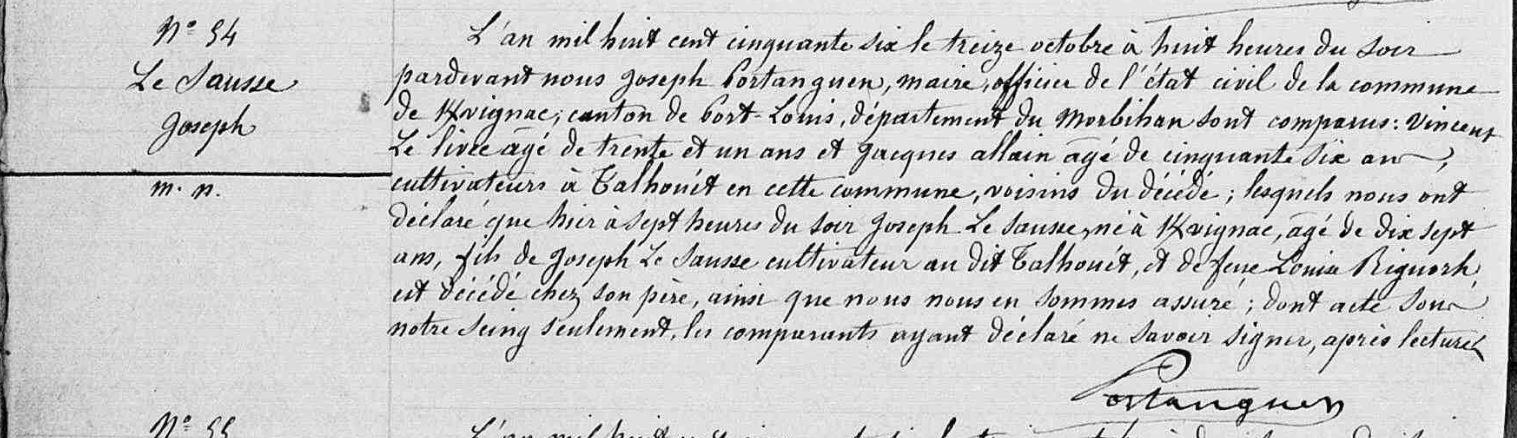 N° 54
Le Sausse
Joseph
m. n.
L'an mil huit cent cinquante six le treize octobre à huit heures du soir
pardevant nous Joseph Portanguen, maire, officier de l'état civil de la commune
de Kvignac, canton de Port-Louis, département du Morbihan sont comparus: Vincent
Le livec âgé de trente et un ans et Jacques allain âgé de cinquante six ans,
cultivateurs à Talhouët en cette commune, voisins du décédé; lesquels nous ont
déclaré que hier à sept heures du soir Joseph Le Sausse, né à Kvignac, âgé de dix sept
ans, fils de Joseph Le Sausse cultivateur au dit Talhouët, et de feue Louise Riguorh
est décédé chez son père, ainsi que nous nous en sommes assuré; dont acte sous
notre seing seulement, les comparants ayant déclaré ne savoir signer, après lecture
Portanguen
N° 55
L'an mil huit